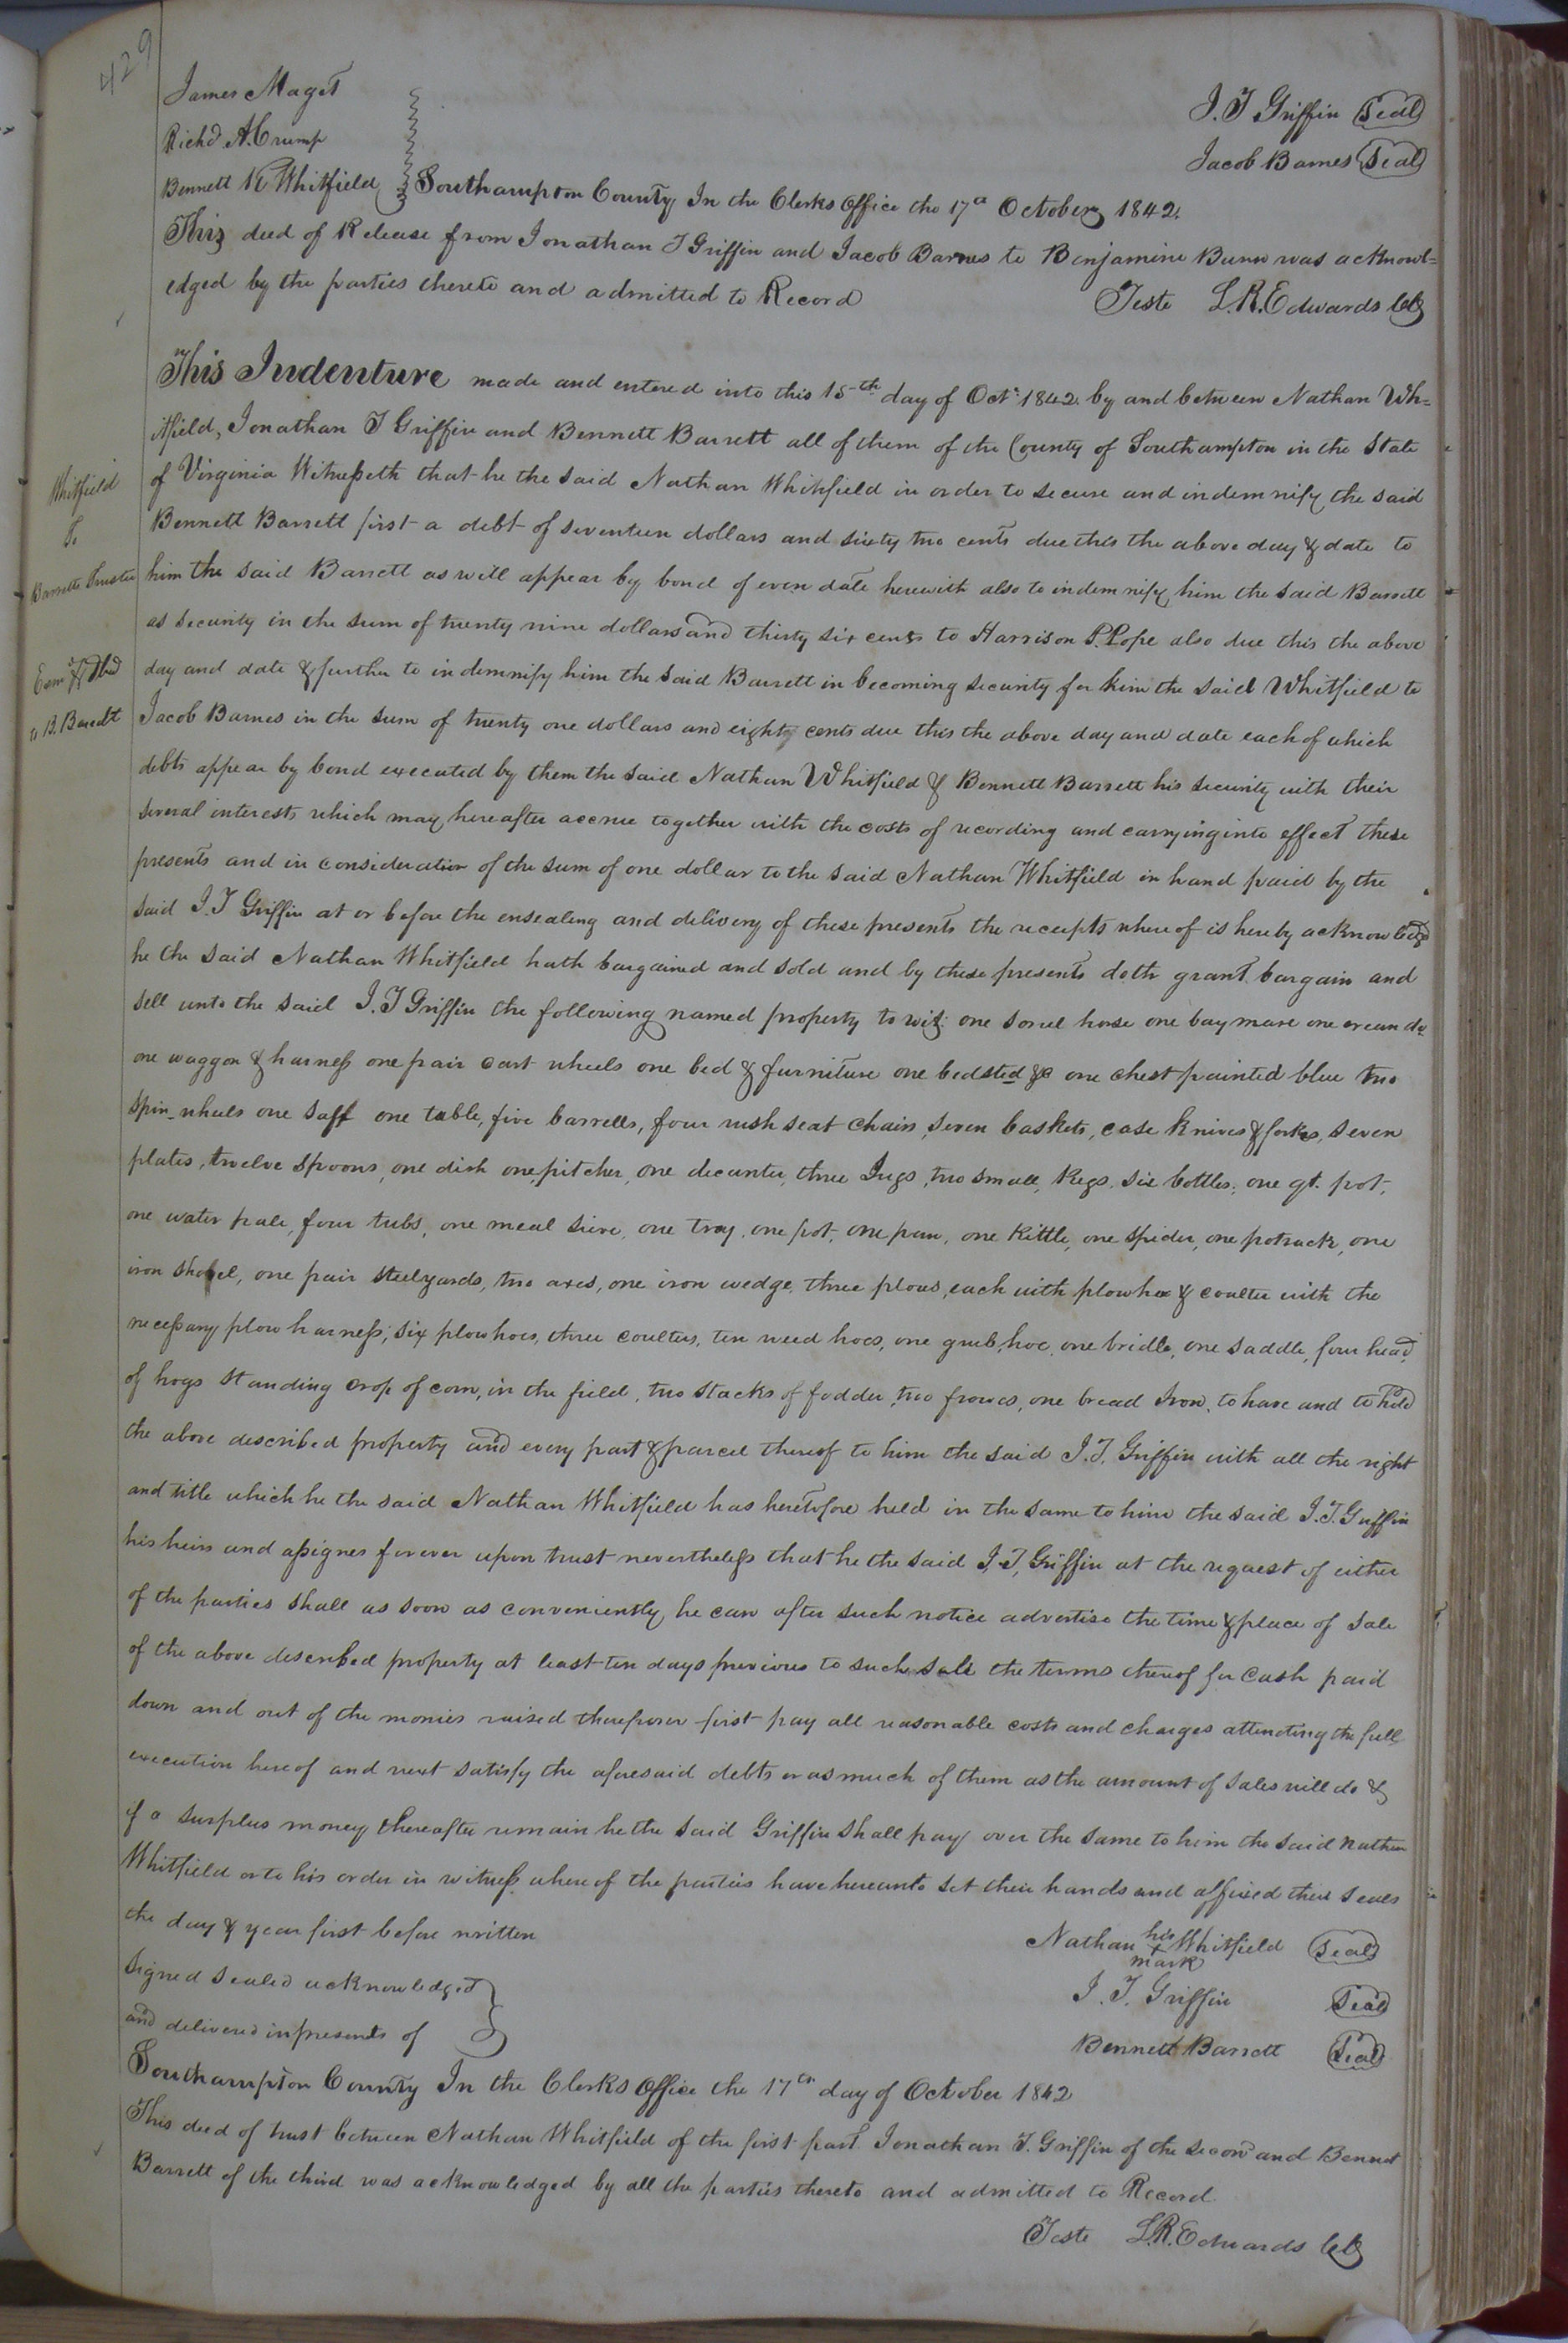 429
James Maget
Richd A. Crump
Bennett K Whitfield
J. T Griffin Seal
Jacob Barnes Seal
Southampton County In the Clerks Office the 17th October 1842.
This deed of Release from Jonathan T Griffin and Jacob Barnes to Benjamine Bunn was acknowl=
edged by the parties thereto and admitted to Record
Teste L. R. Edwards Clk
Whitfield
To
Barretts Trustee
Exmd & Dld
to B. Barrett
This Indenture made and entered into this 15th day of Octr 1842. by and between Nathan Wh=
itfield, Jonathan T Griffin and Bennett Barrett all of them of the County of Southampton in the State
of Virginia Witnesseth that he the said Nathan Whitfield in order to secure and indemnify the said
Bennett Barrett first a debt of seventeen dollars and sixty two cents due this the above day & date to
him the said Barrett as will appear by bond of even date herewith also to indemnify him the said Barrett
as security in the sum of twenty nine dollars and thirty six cents to Harrison P. Pope also due this the above
day and date & further to indemnify him the said Barrett in becoming security for him the said Whitfield to
Jacob Barnes in the sum of twenty one dollars and eighty cents due this the above day and date each of which
debts appear by bond executed by them the said Nathan Whitfield & Bennett Barrett his security with their
several interests which may hereafter accrue together with the costs of recording and carrying into effect these
presents and in consideration of the sum of one dollar to the said Nathan Whitfield in hand paid by the
said J. T Griffin at or before the ensealing and delivery of these presents the receipts whereof is hereby acknowledged
he the said Nathan Whitfield hath bargained and sold and by these presents doth grant bargain and
sell unto the said J. T Griffin the following named property to wit: one sorrel horse one bay mare one cream do
one waggon & harness one pair cart wheels one bed & furniture one bedsted &c one chest painted blue two
spin-wheels one saff one table, five barrells, four rush seat chairs, seven baskets, case knives & forks, seven
plates, twelve spoons, one dish one pitcher, one decanter, three Jugs, two small, Kegs, six bottles, one qt. pot,
one water pale, four tubs, one meal sieve, one tray, one pot, one pan, one Kittle, one spider, one potrack, one
iron shovel, one pair steelyards, two axes, one iron wedge, three plows, each with plowhoe & coulter with the
necessary plow harness, six plowhoes, three coulters, ten weed hoes, one grub, hoe, one bridle, one saddle, four head,
of hogs standing crop of corn, in the field, two stacks of fodder, two frowes, one bread Iron, to have and to hold
the above described property and every part & parcel thereof to him the said J. T. Griffin with all the right
and title which he the said Nathan Whitfield has heretofore held in the same to him the said J. T. Griffin
his heirs and assignes forever upon trust nevertheless that he the said J. T, Griffin at the request of either
of the parties shall as soon as conveniently, he can after such notice advertise the time & place of sale
of the above described property at least ten days previous to such sale the terms thereof for Cash paid
down and out of the monies raised therefrom first pay all reasonable costs and charges attending the full
execution hereof and next satisfy the aforesaid debts or as much of them as the amount of sales will do &
if a surplus money thereafter remain he the said Griffin shall pay over the same to him the said Nathan
Whitfield or to his order in witness whereof the parties have hereunto set their hands and affixed their seals
the day & year first before written
Signed sealed acknowledged
and delivered in presents of
Nathan his x mark Whitfield Seal
J. T. Griffin Seal
Bennett Barrett Seal
Southampton County In the Clerks Office the 17th day of October 1842
This deed of trust between Nathan Whitfield of the first part Jonathan T. Griffin of the second and Bennet
Barrett of the third was acknowledged by all the parties thereto and admitted to Record
Teste L. R. Edwards Clk